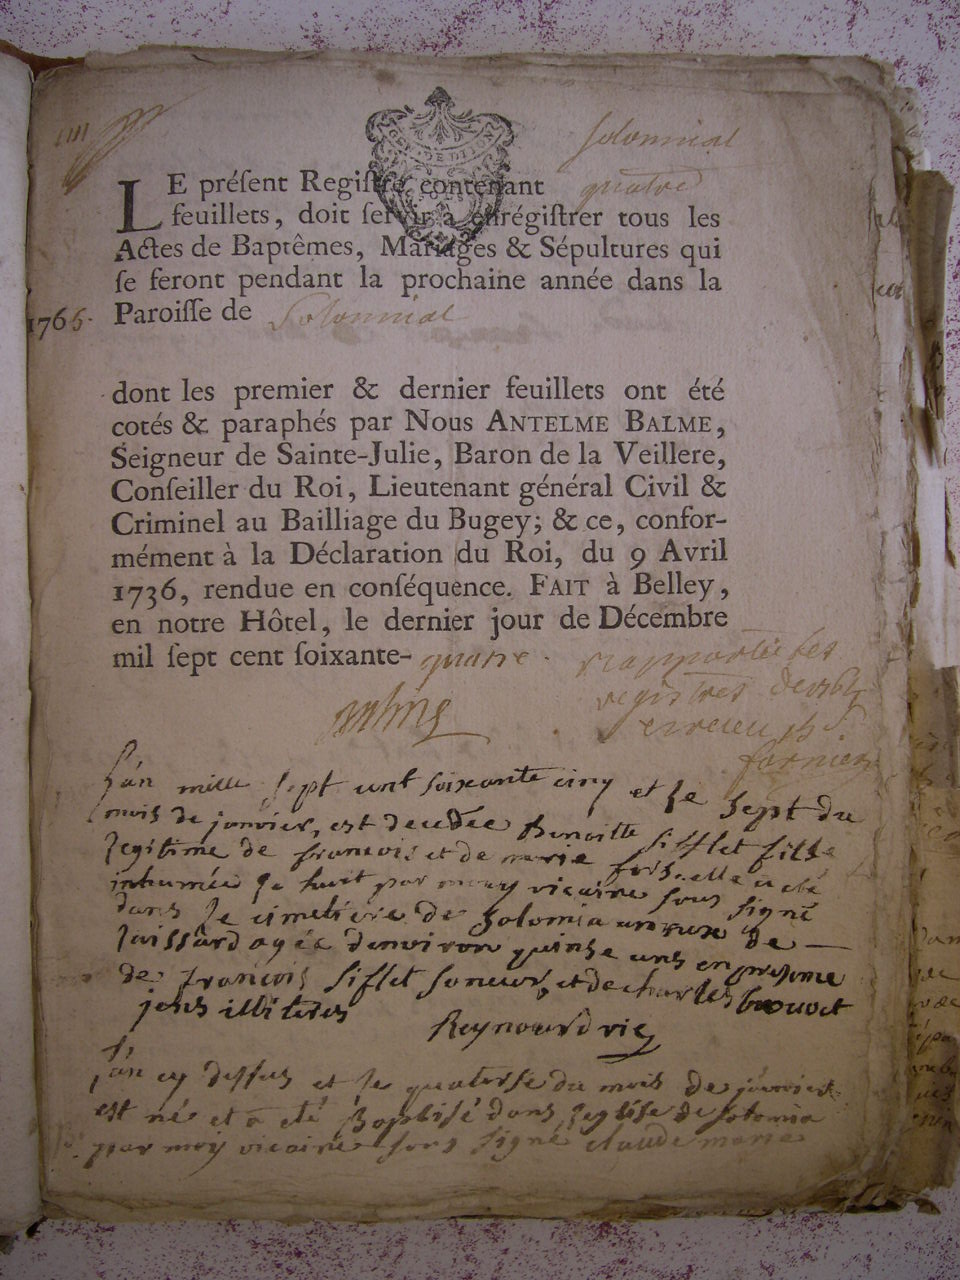 Solomiat
LE préſent Regiſtre contenant quatre
feuillets, doit ſervir à enrégiſtrer tous les
Actes de Baptêmes, Mariages & Sépultures qui
ſe feront pendant la prochaine année dans la
1765. Paroiſſe de Solomiat
dont les premier & dernier feuillets ont été
cotés & paraphés par Nous ANTELME BALME,
Seigneur de Sainte-Julie, Baron de la Veillere,
Conſeiller du Roi, Lieutenant général Civil &
Criminel au Bailliage du Bugey; & ce, confor-
mément à la Déclaration du Roi, du 9 Avril
1736, rendue en conſéquence. FAIT à Belley,
en notre Hôtel, le dernier jour de Décembre
mil ſept cent ſoixante-quatre.
registres
L'an mille sept cent soixante cinq et le sept du
mois de janvier, est decedée Benoitte Sifflet fille
legitime de francois et de marie elle a eté
inhumée le huit par moy vicaire sous signé
dans le cimetiere de Solomia de
agée denviron quinse ans en presence
de francois Siflet et de charles
illiteres
Reynourd vic
L'an cy dessus et le quatorse du mois de janvier
est né et à eté Baptisé dans leglise de solomia
par moy vicaire sous signé claude marie